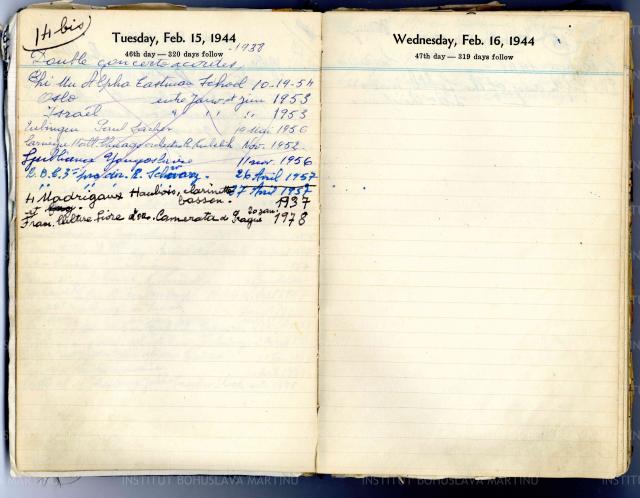 14 bis
Tuesday, Feb. 15, 1944
46th day — 320 days follow
1938
Double concerto
Phi Mu Alpha Eastman School 10-19-54
Oslo entre Janv et Juin 1953
Israël " " " 1953
Paul Sacher 1956
Carnegie Hall Chicago Kubelik Nov. 1952.
Ljubliana Yougoslavie 11 nov. 1956
B.B.C. 3e progr dir. R. Schwarz. 26 Avril 1957
" " " 27 Avril 1957
4 Madrigaux Haubois, clarinette
et basson. 1937
Camerata de Prague 1978
Wednesday, Feb. 16, 1944
47th day — 319 days follow
INSTITUT BOHUSLAVA MARTINŮ